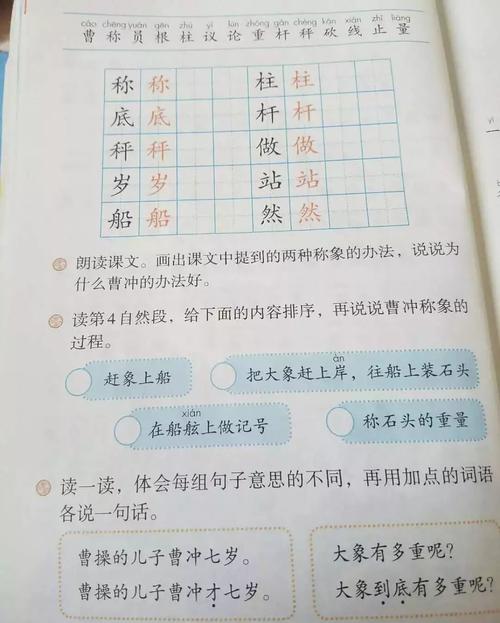 cáo chēng yuán gēn zhù yì lùn zhòng gǎn chèng kǎn xiàn zhǐ liàng
曹 称 员 根 柱 议 论 重 杆 秤 砍 线 止 量
称 称 柱 柱
底 底 杆 杆
秤 秤 做 做
岁 岁 站 站
船 船 然 然
朗读课文。画出课文中提到的两种称象的办法，说说为
什么曹冲的办法好。
读第4自然段，给下面的内容排序，再说说曹冲称象的
过程。
àn
赶象上船 把大象赶上岸，往船上装石头
xián
在船舷上做记号 称石头的重量
读一读，体会每组句子意思的不同，再用加点的词语
各说一句话。
曹操的儿子曹冲七岁。 大象有多重呢？
曹操的儿子曹冲才七岁。 大象到底有多重呢？